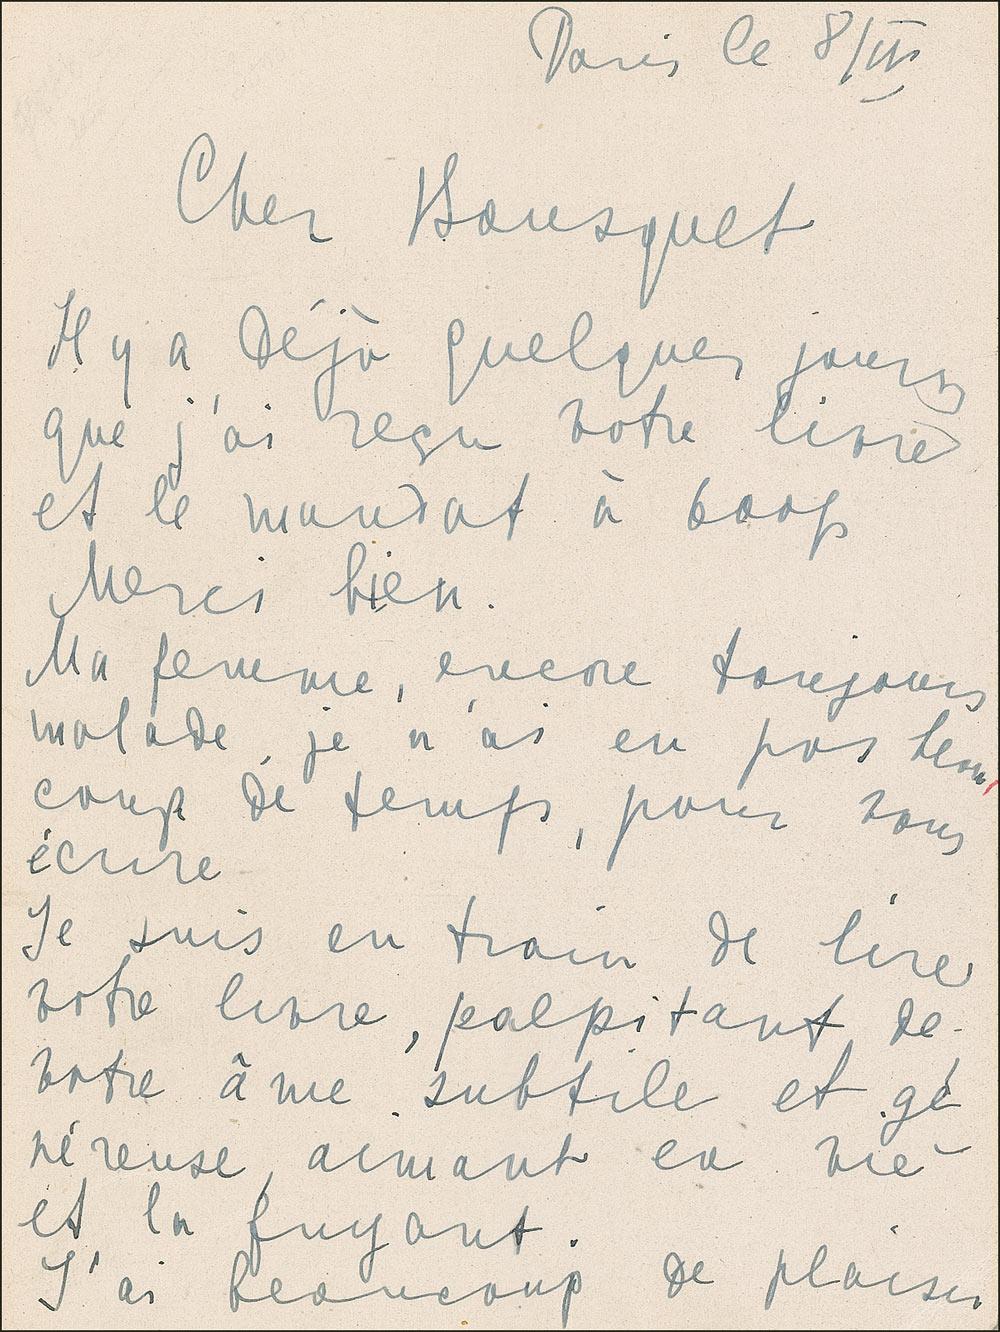 Paris le 8/III
Cher Bousquet
Il y a déjà quelques jours
que j'ai reçu votre livre
et le mandat à 600f
Merci bien.
Ma femme, encore toujours
malade, je n'ai eu pas beau
coup de temps, pour vous
écrire
Je suis en train de lire
votre livre, palpitant de
votre âme subtile et gé
néreuse, aimant la vie
et la fuyant.
J'ai beaucoup de plaisir